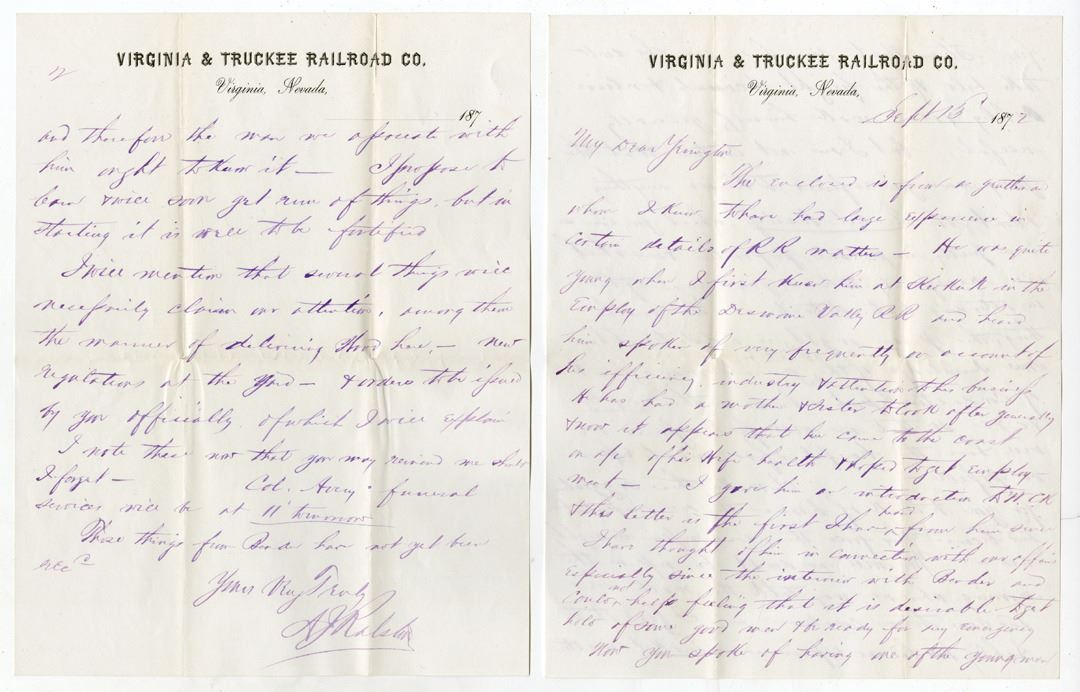 VIRGINIA & TRUCKEE RAILROAD CO.
Virginia, Nevada,
187
and therefore the man we associate with
him ought to know it — I propose to
learn & will soon get run of things, but in
starting it is well to be fortified
I will mention that several things will
necessarily claim our attention, among them
the manner of delivering Wood here, — new
regulations at the Yard — & orders to be issued
by you officially, of which I will explain
I note these now that you may remind me should
I forget — Col. Avery' funeral
services will be at 11 tomorrow
Those things from Bender have not yet been
recd
Yours Very Truly
A J Ralston
VIRGINIA & TRUCKEE RAILROAD CO.
Virginia, Nevada,
Sept 15 1872
My Dear Yerington
The enclosed is from a gentleman
whom I know to have had large experience in
certain details of RR matter — He was quite
young when I first knew him at Keokuk in the
Employ of the Desmoine Valley RR and heard
him spoken of very frequently on account of
his efficiency, industry & attention to his business
He has had a mother & sister to look after generally
& now it appears that he came to the coast
on a/c of his Wife' health & hoped to get employ-
ment — I gave him an introduction to
& this letter is the first I have had from him since
I have thought of him in connection with our affairs
Especially since the interview with Bender and
Could not help feeling that it is desirable to get
hold of some good man & be ready for any emergency
Now you spoke of having one of the young men